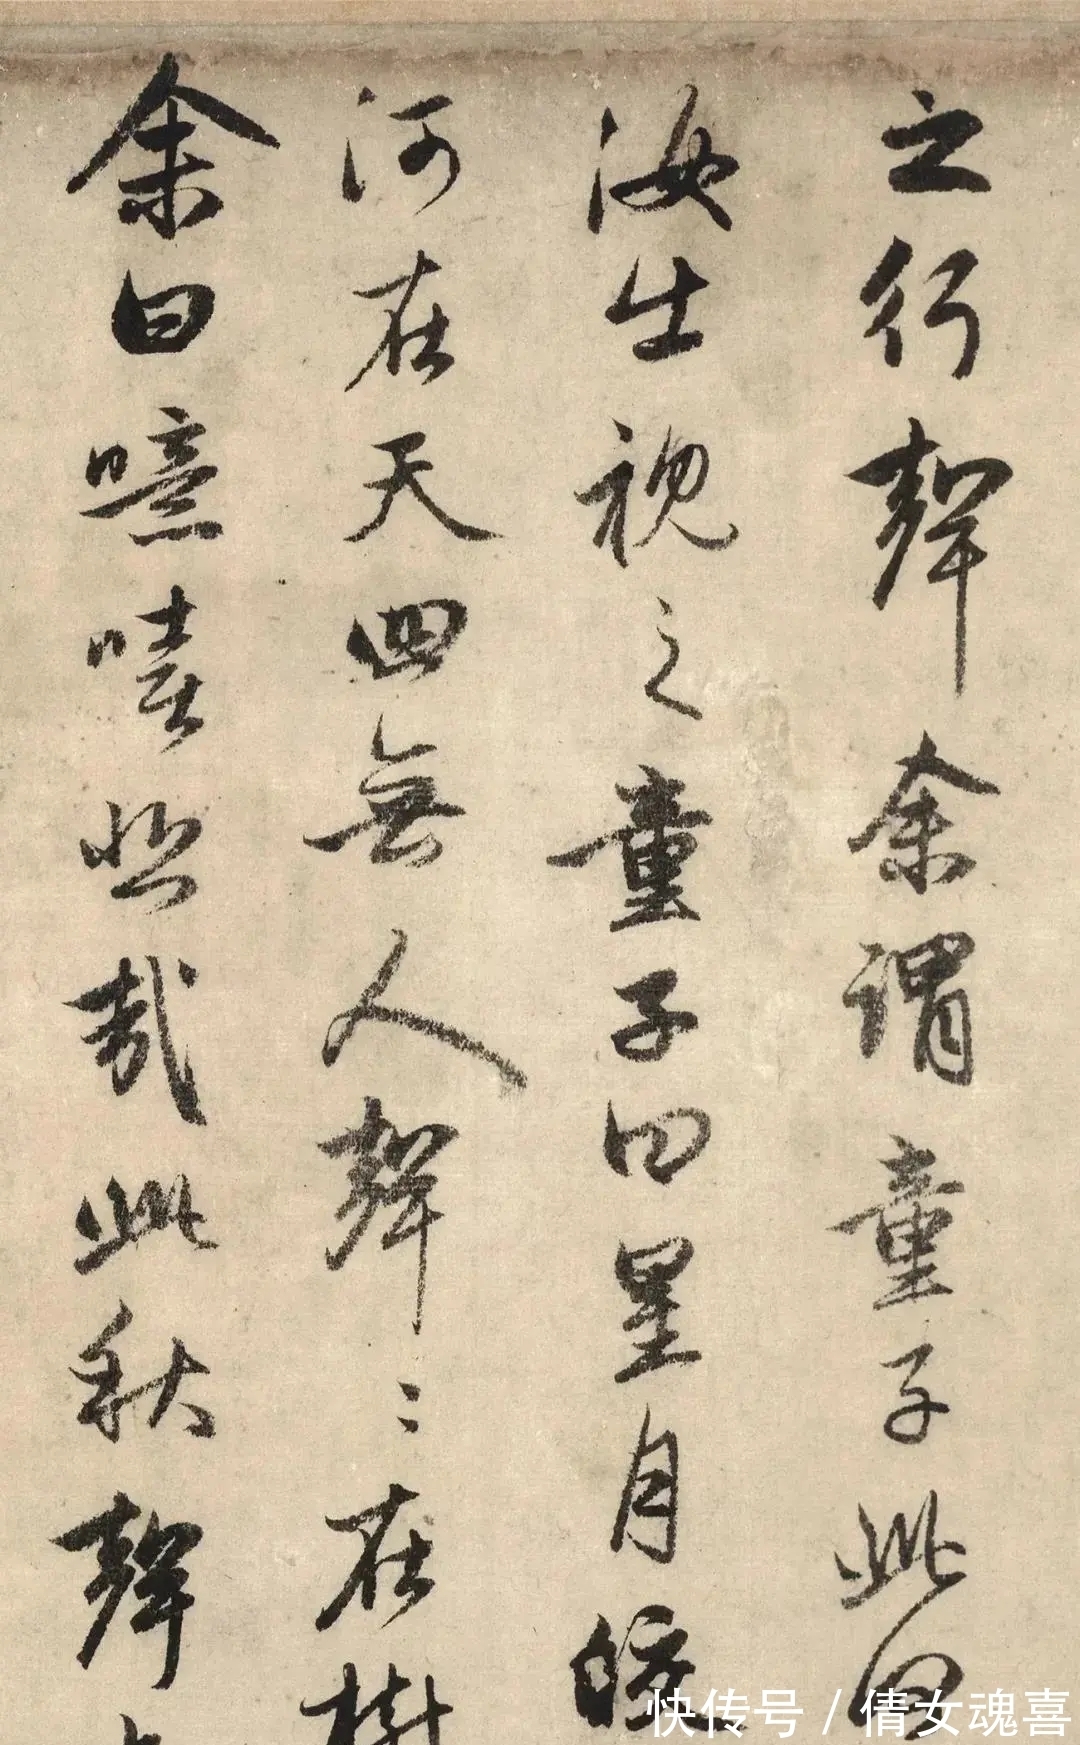 之行聲余謂童子此何
汝出視之童子曰星月皎
河在天四無人聲〻在樹
余曰噫嘻悲哉此秋聲
快传号/倩女魂喜